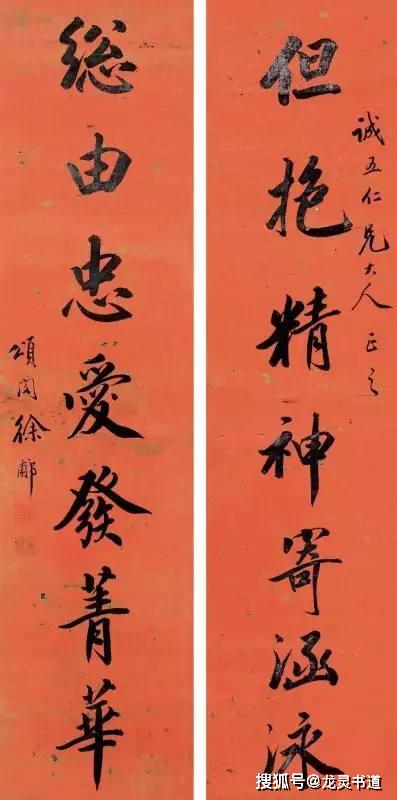 誠五仁兄大人正之
但抱精神寄涵泳
総由忠愛發菁華
頌閣徐郙
搜狐号@龙灵书道